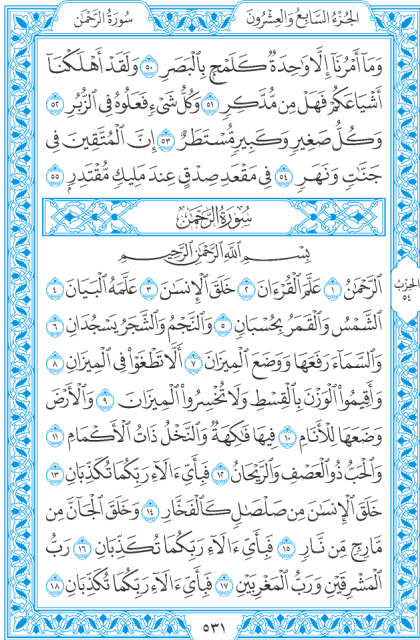 سُورَةُ الرَّحْمٰن الجُزْءُ السَّابِعُ وَالعِشْرُونَ
وَمَآ أَمْرُنَآ إِلَّا وَٰحِدَةٌ كَلَمْحٍۭ بِٱلْبَصَرِ ٥٠ وَلَقَدْ أَهْلَكْنَآ
أَشْيَاعَكُمْ فَهَلْ مِن مُّدَّكِرٍ ٥١ وَكُلُّ شَىْءٍ فَعَلُوهُ فِى ٱلزُّبُرِ ٥٢
وَكُلُّ صَغِيرٍ وَكَبِيرٍ مُّسْتَطَرٌ ٥٣ إِنَّ ٱلْمُتَّقِينَ فِى
جَنَّٰتٍ وَنَهَرٍ ٥٤ فِى مَقْعَدِ صِدْقٍ عِندَ مَلِيكٍ مُّقْتَدِرٍۭ ٥٥
سُورَةُ الرَّحْمٰن
بِسْمِ ٱللَّهِ ٱلرَّحْمَٰنِ ٱلرَّحِيمِ
ٱلرَّحْمَٰنُ ١ عَلَّمَ ٱلْقُرْءَانَ ٢ خَلَقَ ٱلْإِنسَٰنَ ٣ عَلَّمَهُ ٱلْبَيَانَ ٤
ٱلشَّمْسُ وَٱلْقَمَرُ بِحُسْبَانٍ ٥ وَٱلنَّجْمُ وَٱلشَّجَرُ يَسْجُدَانِ ٦
وَٱلسَّمَآءَ رَفَعَهَا وَوَضَعَ ٱلْمِيزَانَ ٧ أَلَّا تَطْغَوْا۟ فِى ٱلْمِيزَانِ ٨
وَأَقِيمُوا۟ ٱلْوَزْنَ بِٱلْقِسْطِ وَلَا تُخْسِرُوا۟ ٱلْمِيزَانَ ٩ وَٱلْأَرْضَ
وَضَعَهَا لِلْأَنَامِ ١٠ فِيهَا فَٰكِهَةٌ وَٱلنَّخْلُ ذَاتُ ٱلْأَكْمَامِ ١١
وَٱلْحَبُّ ذُو ٱلْعَصْفِ وَٱلرَّيْحَانُ ١٢ فَبِأَىِّ ءَالَآءِ رَبِّكُمَا تُكَذِّبَانِ ١٣
خَلَقَ ٱلْإِنسَٰنَ مِن صَلْصَٰلٍ كَٱلْفَخَّارِ ١٤ وَخَلَقَ ٱلْجَآنَّ مِن
مَّارِجٍ مِّن نَّارٍ ١٥ فَبِأَىِّ ءَالَآءِ رَبِّكُمَا تُكَذِّبَانِ ١٦ رَبُّ
ٱلْمَشْرِقَيْنِ وَرَبُّ ٱلْمَغْرِبَيْنِ ١٧ فَبِأَىِّ ءَالَآءِ رَبِّكُمَا تُكَذِّبَانِ ١٨
الحِزْبُ
٥٤
٥٣١